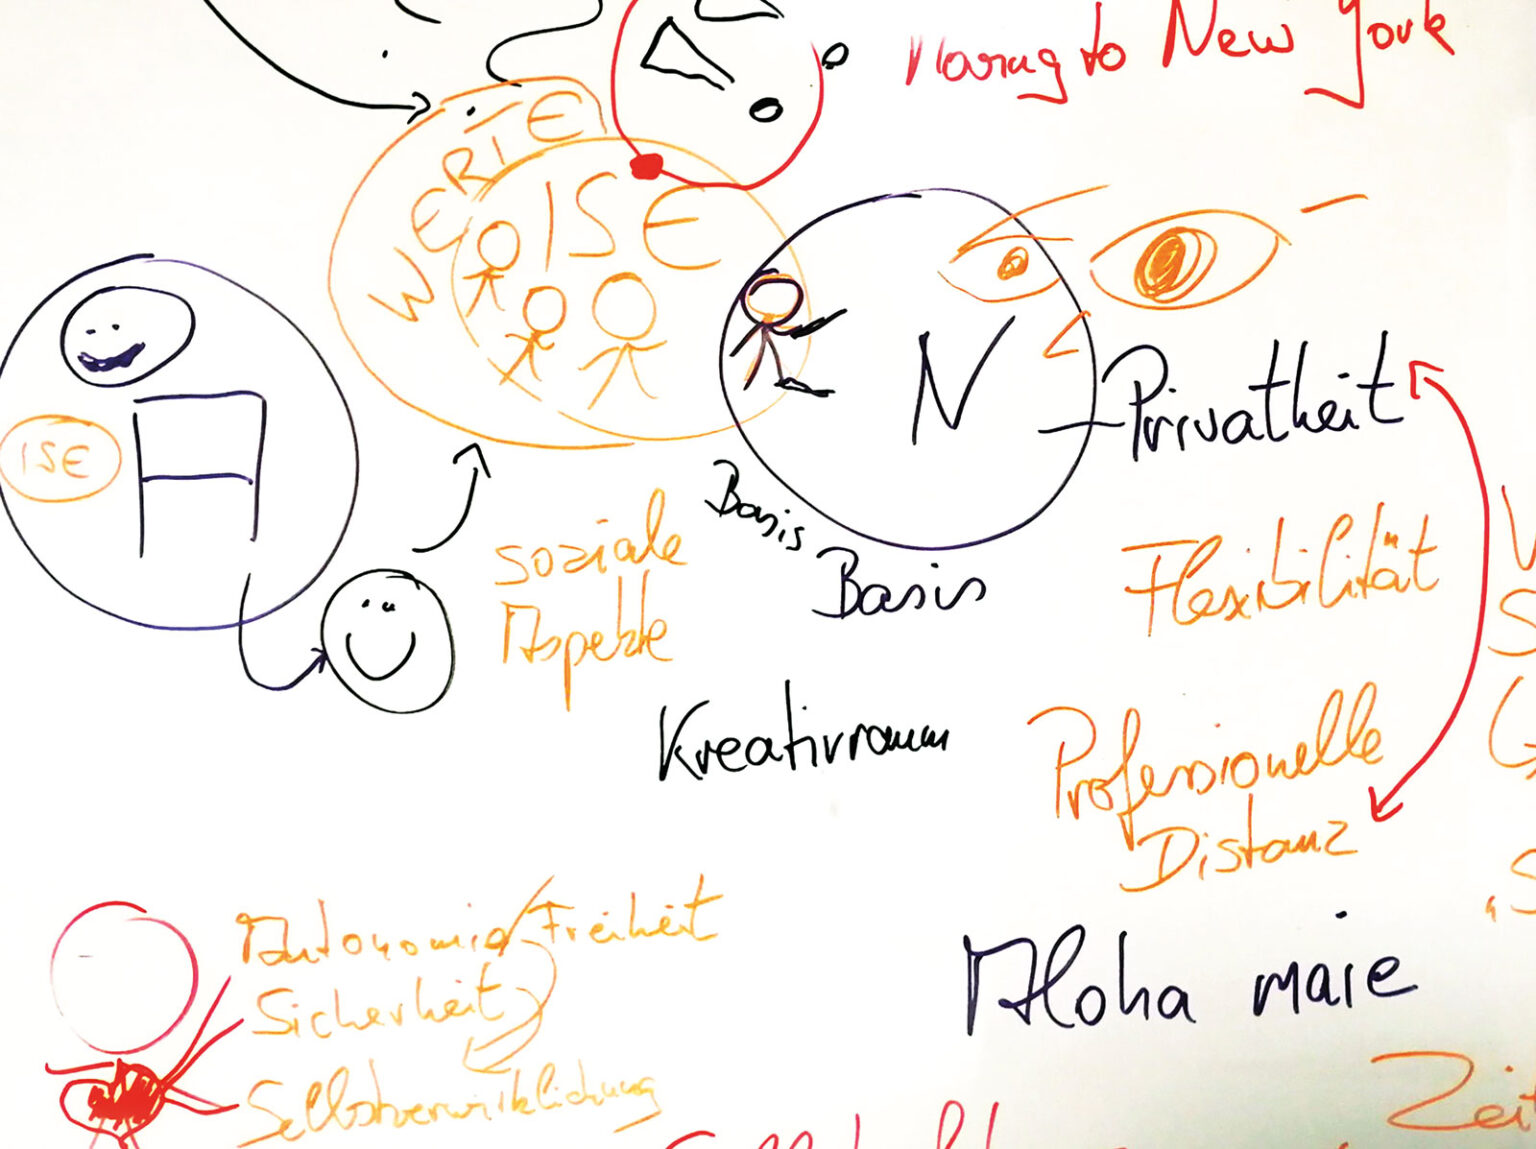 to New York
WERTE
ISE
N
Privatheit
ISE
Basis
soziale
Aspekte
Basis
Flexibilität
Kreativraum
Professionelle
Distanz
Autonomie/Freiheit
Sicherheit
Selbstverwirklichung
Aloha maie
Zeit